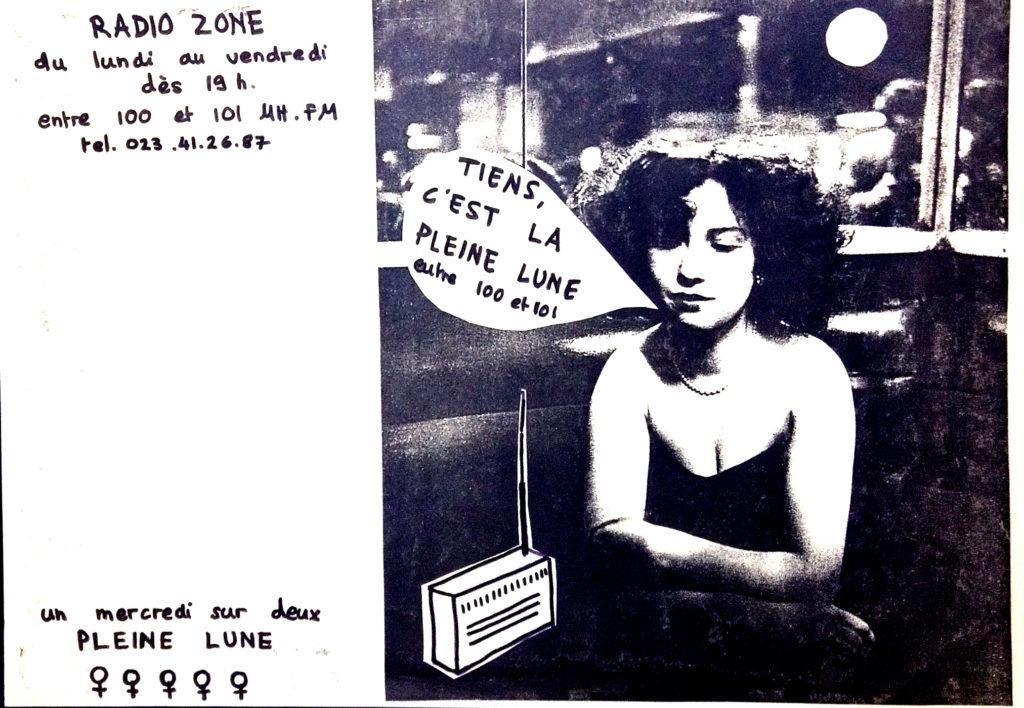 RADIO ZONE
du lundi au vendredi
dès 19 h.
entre 100 et 101 MH.FM
tel. 023.41.26.87
TIENS,
C'EST LA
PLEINE LUNE
entre 100 et 101
un mercredi sur deux
PLEINE LUNE
♀ ♀ ♀ ♀ ♀